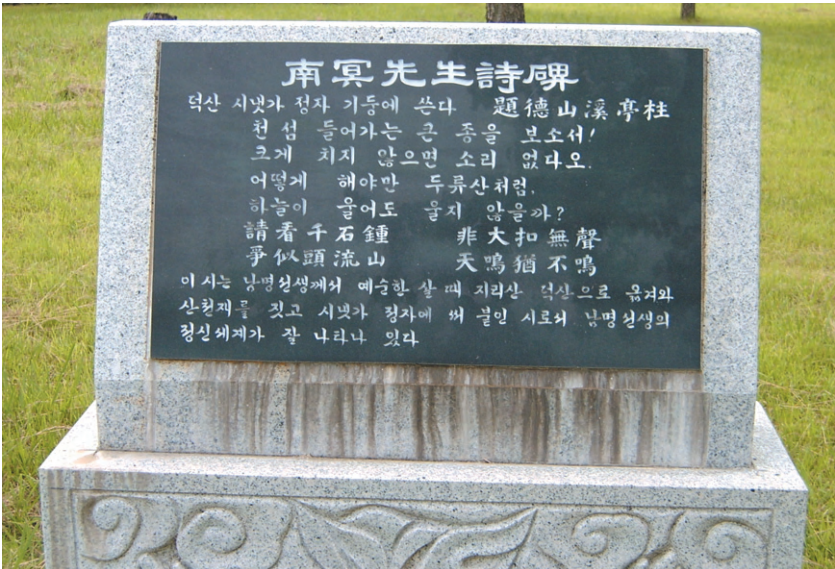 南冥先生詩碑
덕산 시냇가 정자 기둥에 쓴다 題德山溪亭柱
천 섬 들어가는 큰 종을 보소서!
크게 치지 않으면 소리 없다오.
어떻게 해야만 두류산처럼,
하늘이 울어도 울지 않을까?
請看千石鍾 非大扣無聲
爭似頭流山 天鳴猶不鳴
이 시는 남명선생께서 예순한 살 때 지리산 덕산으로 옮겨와
산천재를 짓고 시냇가 정자에 써 붙인 시로서 남명선생의
정신세계가 잘 나타나 있다